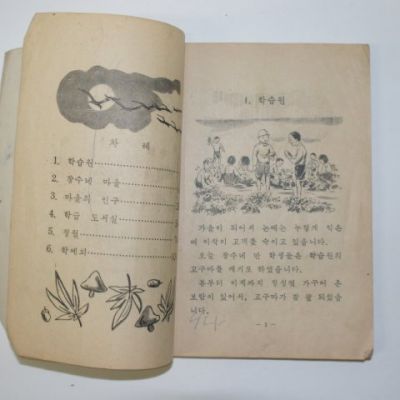 차 례
1. 학습원
2. 장수네 마을
3. 마을의 인구
4. 학급 도서실
5. 정월
6. 학예회
1. 학습원
가을이 되어서 논에는 누렇게 익은
벼 이삭이 고개를 숙이고 있습니다.
오늘 장수네 반 학생들은 학습원의
고구마를 캐기로 하였습니다.
봄부터 이제까지 정성껏 가꾸어 온
보람이 있어서, 고구마가 참 잘 되었습
니다.
- 3 -